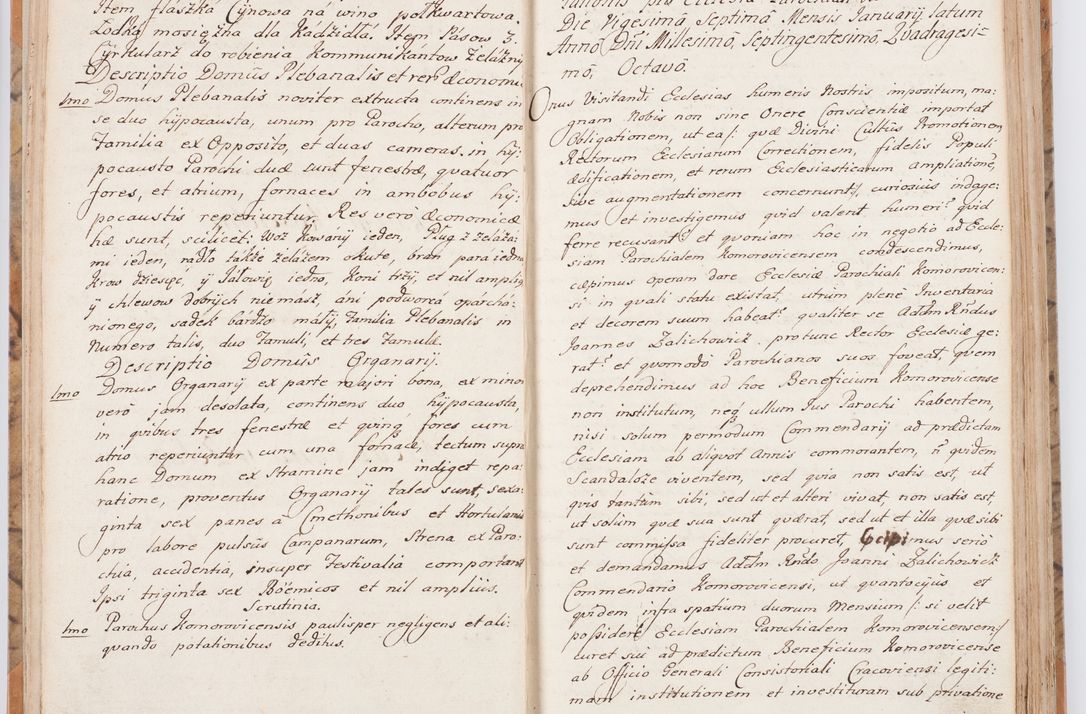 Item flaszka Cynowa na wino pełkwartowa.
Łodka mosiężna dla Kadzidła. Item Pasow 3.
Cyrkularz do robienia Kommunikantow Zelazny
Descriptio Domus Plebanalis et rerũ Œconomi
Imo Domus Plebanalis noviter extructa continens in
se duo hypocausta, unum pro Parocho, alterum pro
Familia ex Opposito, et duas cameras. in hy:
pocausto Parochi duæ sunt fenestræ, quatuor
fores, et atrium, fornaces in ambobus hy:
pocaustis reperiuntur. Res verò Œconomicæ
hæ sunt, scilicet: Woz Kowany ieden, Pług z zelaza:
mi ieden, radło także zelazem okute, bron para iedna
Krow dziesięć, y Jałowię iedno, Koni trzy, et nil amplius
y chlewow dobrych niemasz, ani podworca oparcha:
nionego, sadek bardzo mały, Familia Plebanalis in
Numero talis, duo Famuli, et tres Famulæ.
Descriptio Domûs Organarij.
Imo Domus Organarij ex parte majori bona, ex minori
verò jam desolata, continens duo hypocausta,
in quibus tres fenestræ et quinq fores cum
atrio reperiuntur cum una fornace, tectum supra
hanc Domum ex stramine jam indiget repa:
ratione, proventus Organarij tales sunt, sexa:
ginta sex panes a Cmethonibus et Hortulanis
pro labore pulsûs Campanarum, Strena ex Paro:
chia, accidentia, insuper Festivalia comportant
Ipsi triginta sex Boëmicos et nil ampliûs.
Scrutinia.
Imo Parochus Komorovicensis paulisper negligens et ali:
quando potationibus deditus.
Die Vigesimâ Septimâ Mensis Januarij latum
Annô Dñi Millesimô, Septingentesimô, Quadragesi:
mô, Octavô.
Onus Visitandi Ecclesias humeris Nostris impositum, ma:
gnam Nobis non sine Onere Conscientiæ importat
Obligationem, ut ea /: quæ Divini Cultûs Promotionem
Rectorum Ecclesiarum Correctionem, fidelis Populi
ædificationem, et rerum Ecclesiasticarum ampliationẽ,
sive augmentationem concernunt :/ curioaius indage:
mus et investigemus quid valent humeri? quid
ferre recusant? et quoniam hoc in negotio ad Eccle:
siam Parochialem Komorovicensem condescendimus,
cæpimus operam dare Ecclesiæ Parochiali Komorovicen:
si in quali statu existat, utrùm plenè Inventaria
et decorem suum habeat? qualiter se Adm Rñdus
Joannes Zalichowicz protunc Rector Ecclesiæ ge:
rat? et quomodò Parochianos suos foveat, quem
deprehendimus ad hoc Beneficium Komorovicense
non institutum, neq ullum Jus Parochi habentem,
nisi solùm permodum Commendarij ad prædictam
Ecclesiam ab aliquot Annis commorantem, ñ quidem
Scandalosè viventem, sed quia non satis est, ut
quis tantùm sibi, sed ut et alteri vivat non satis est,
ut solùm quæ sua sunt quærat, sed ut et illa quæ sibi
sunt commissa fideliter procuret, serió
et demandamus Adm Rñdo Joanni Zalichowicz
Commendario Komorovicensi, ut quantocyùs et
quidem infra spatium duorum Mensium /: si velit
possidere Ecclesiam Parochialem Komorovicensem :/
curet sui ad prædictum Beneficium Komorovicense
ab Officio Generali Consistoriali Cracoviensi legiti:
mam institutionem et investituram sub privatione